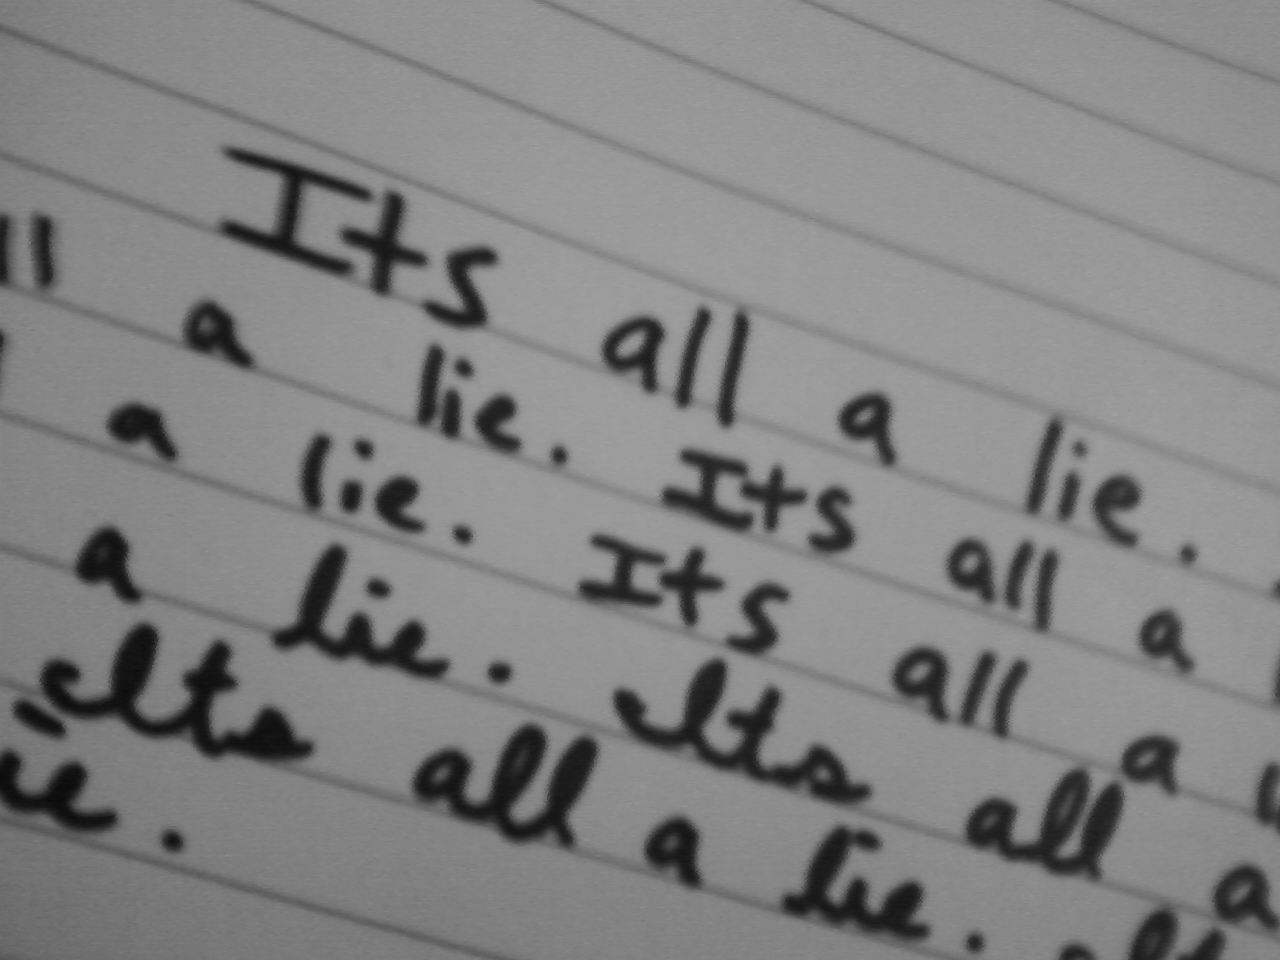 Its all a lie.
all a lie. Its all a
a lie. Its all a
a lie. Its all a
Its all a lie. Its
lie.